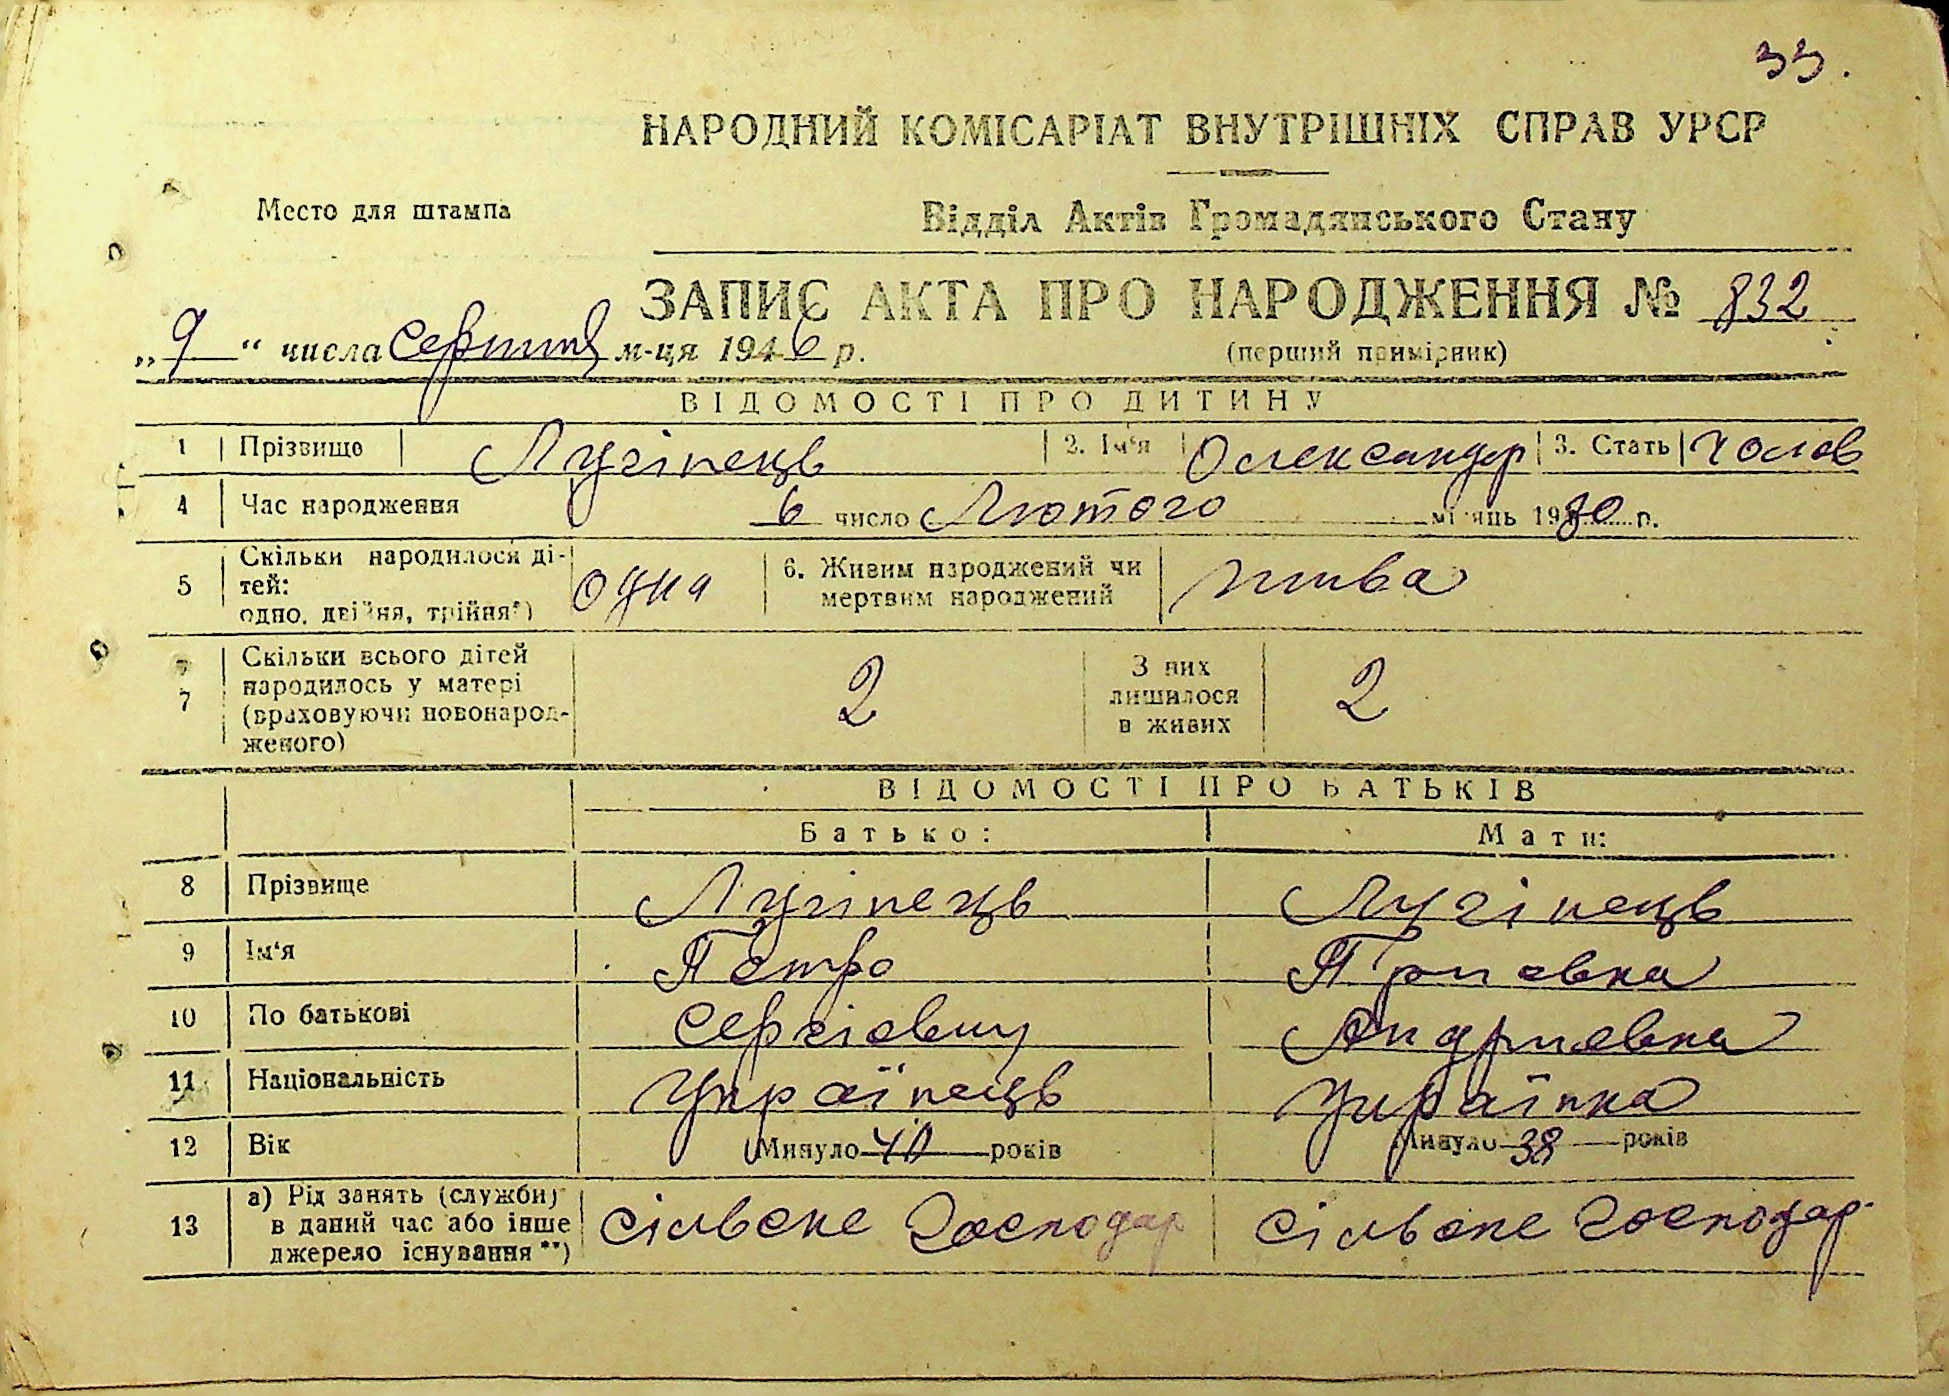 33.
НАРОДНИЙ КОМІСАРІАТ ВНУТРІШНІХ СПРАВ УРСР
Место для штампа
Відділ Актів Громадянського Стану
ЗАПИС АКТА ПРО НАРОДЖЕННЯ № 832
„9“ числа серпня м-ця 1946 р.
(перший примірник)
ВІДОМОСТІ ПРО ДИТИНУ
1 Прізвище Лугінець 2. Ім'я Олександр 3. Стать чолов
4 Час народження 6 число Лютого місяць 1930 р.
5 Скільки народилося ді-
тей:
одно, двійня, трійня*) одна
6. Живим народжений чи
мертвим народжений жива
7 Скільки всього дітей
народилось у матері
(враховуючи новонарод-
женого) 2
З них
лишилося
в живих 2
ВІДОМОСТІ ПРО БАТЬКІВ
Батько: Мати:
8 Прізвище Лугінець Лугінець
9 Ім'я Петро
10 По батькові Сергіевич Андриевна
11 Національність Українець Українка
12 Вік Минуло 40 років Минуло 38 років
13 а) Рід занять (служби)
в даний час або інше
джерело існування**) сільске господар сільске господар